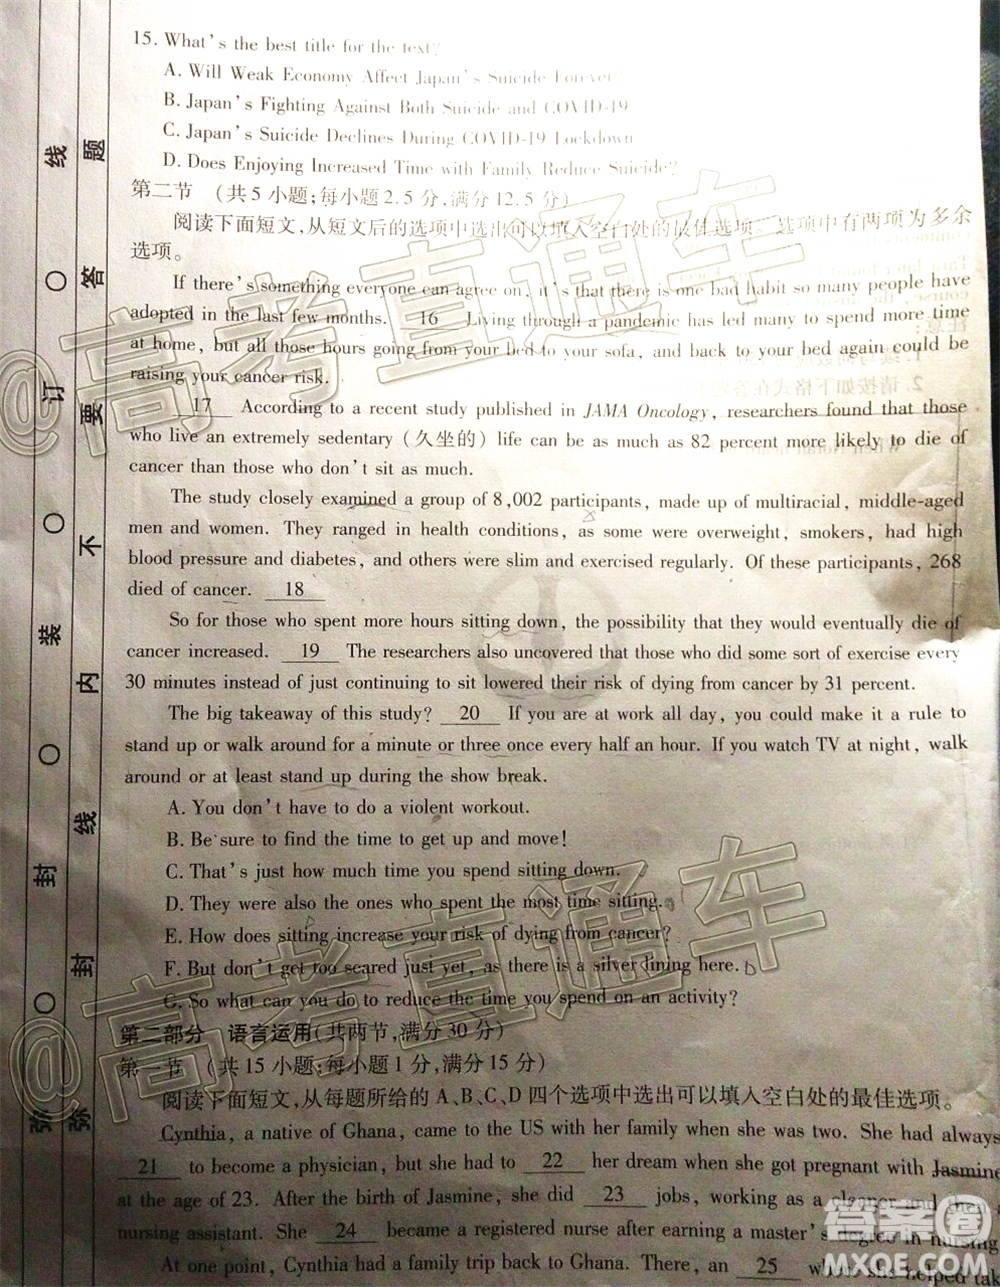 15. What's the best title for the text?
A. Will Weak Economy Affect Japan's Suicide Forever
B. Japan's Fighting Against Both Suicide and COVID-19
C. Japan's Suicide Declines During COVID-19 Lockdown
D. Does Enjoying Increased Time with Family Reduce Suicide?
第二节 (共5小题;每小题2.5分,满分12.5分)
阅读下面短文,从短文后的选项中选出可以填入空白处的最佳选项。选项中有两项为多余
选项。
If there's something everyone can agree on, it's that there is one bad habit so many people have
adopted in the last few months. 16 Living through a pandemic has led many to spend more time
at home, but all those hours going from your bed to your sofa, and back to your bed again could be
raising your cancer risk.
17 According to a recent study published in JAMA Oncology, researchers found that those
who live an extremely sedentary (久坐的) life can be as much as 82 percent more likely to die of
cancer than those who don't sit as much.
The study closely examined a group of 8,002 participants, made up of multiracial, middle-aged
men and women. They ranged in health conditions, as some were overweight, smokers, had high
blood pressure and diabetes, and others were slim and exercised regularly. Of these participants, 268
died of cancer. 18
So for those who spent more hours sitting down, the possibility that they would eventually die of
cancer increased. 19 The researchers also uncovered that those who did some sort of exercise every
30 minutes instead of just continuing to sit lowered their risk of dying from cancer by 31 percent.
The big takeaway of this study? 20 If you are at work all day, you could make it a rule to
stand up or walk around for a minute or three once every half an hour. If you watch TV at night, walk
around or at least stand up during the show break.
A. You don't have to do a violent workout.
B. Be sure to find the time to get up and move!
C. That's just how much time you spend sitting down.
D. They were also the ones who spent the most time sitting.
E. How does sitting increase your risk of dying from cancer?
F. But don't get too scared just yet, as there is a silver lining here.
G. So what can you do to reduce the time you spend on an activity?
第二部分 语言运用(共两节,满分30分)
第一节 (共15小题;每小题1分,满分15分)
阅读下面短文,从每题所给的A、B、C、D四个选项中选出可以填入空白处的最佳选项。
Cynthia, a native of Ghana, came to the US with her family when she was two. She had always
21 to become a physician, but she had to 22 her dream when she got pregnant with Jasmine
at the age of 23. After the birth of Jasmine, she did 23 jobs, working as a cleaner and
nursing assistant. She 24 became a registered nurse after earning a master's degree in nursing
At one point, Cynthia had a family trip back to Ghana. There, an 25 whom she helped tak
线 ○ 订 ○ 装 ○ 封 ○ 弥
题 答 要 不 内 线 封 弥
@高考直通车
@高考直通车
答案圈
MXQE.COM